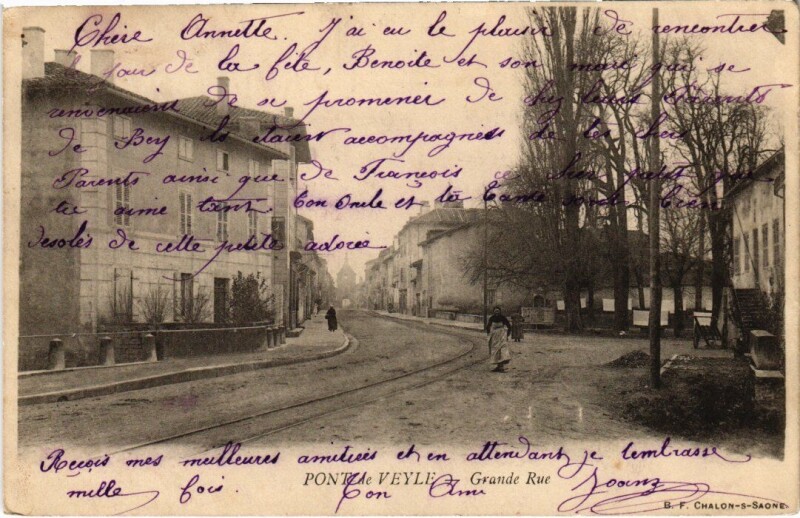 Chère Annette. J'ai eu le plaisir de rencontrer
jour de la fête, Benoite et son mari qui se
revenaient de se promener de chez leurs Parents
de Bey ils étaient accompagnés de tes chers
Parents ainsi que de François ce cher petit que
tu aime tant ton oncle et ta tante sont bien
desolés de cette petite adorée
Reçois mes meilleures amitiées et en attendant je t'embrasse
mille fois. Ton Ami
PONT de VEYLE Grande Rue
B. F. CHALON-S-SAONE